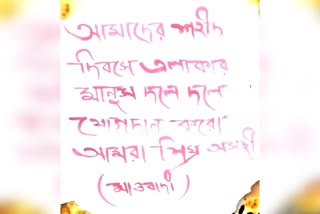 আমাদের শহীদ
দিবসে এলাকার
মানুষ দলে দলে
যোগদান করো
আমরা
(মাওবাদী)